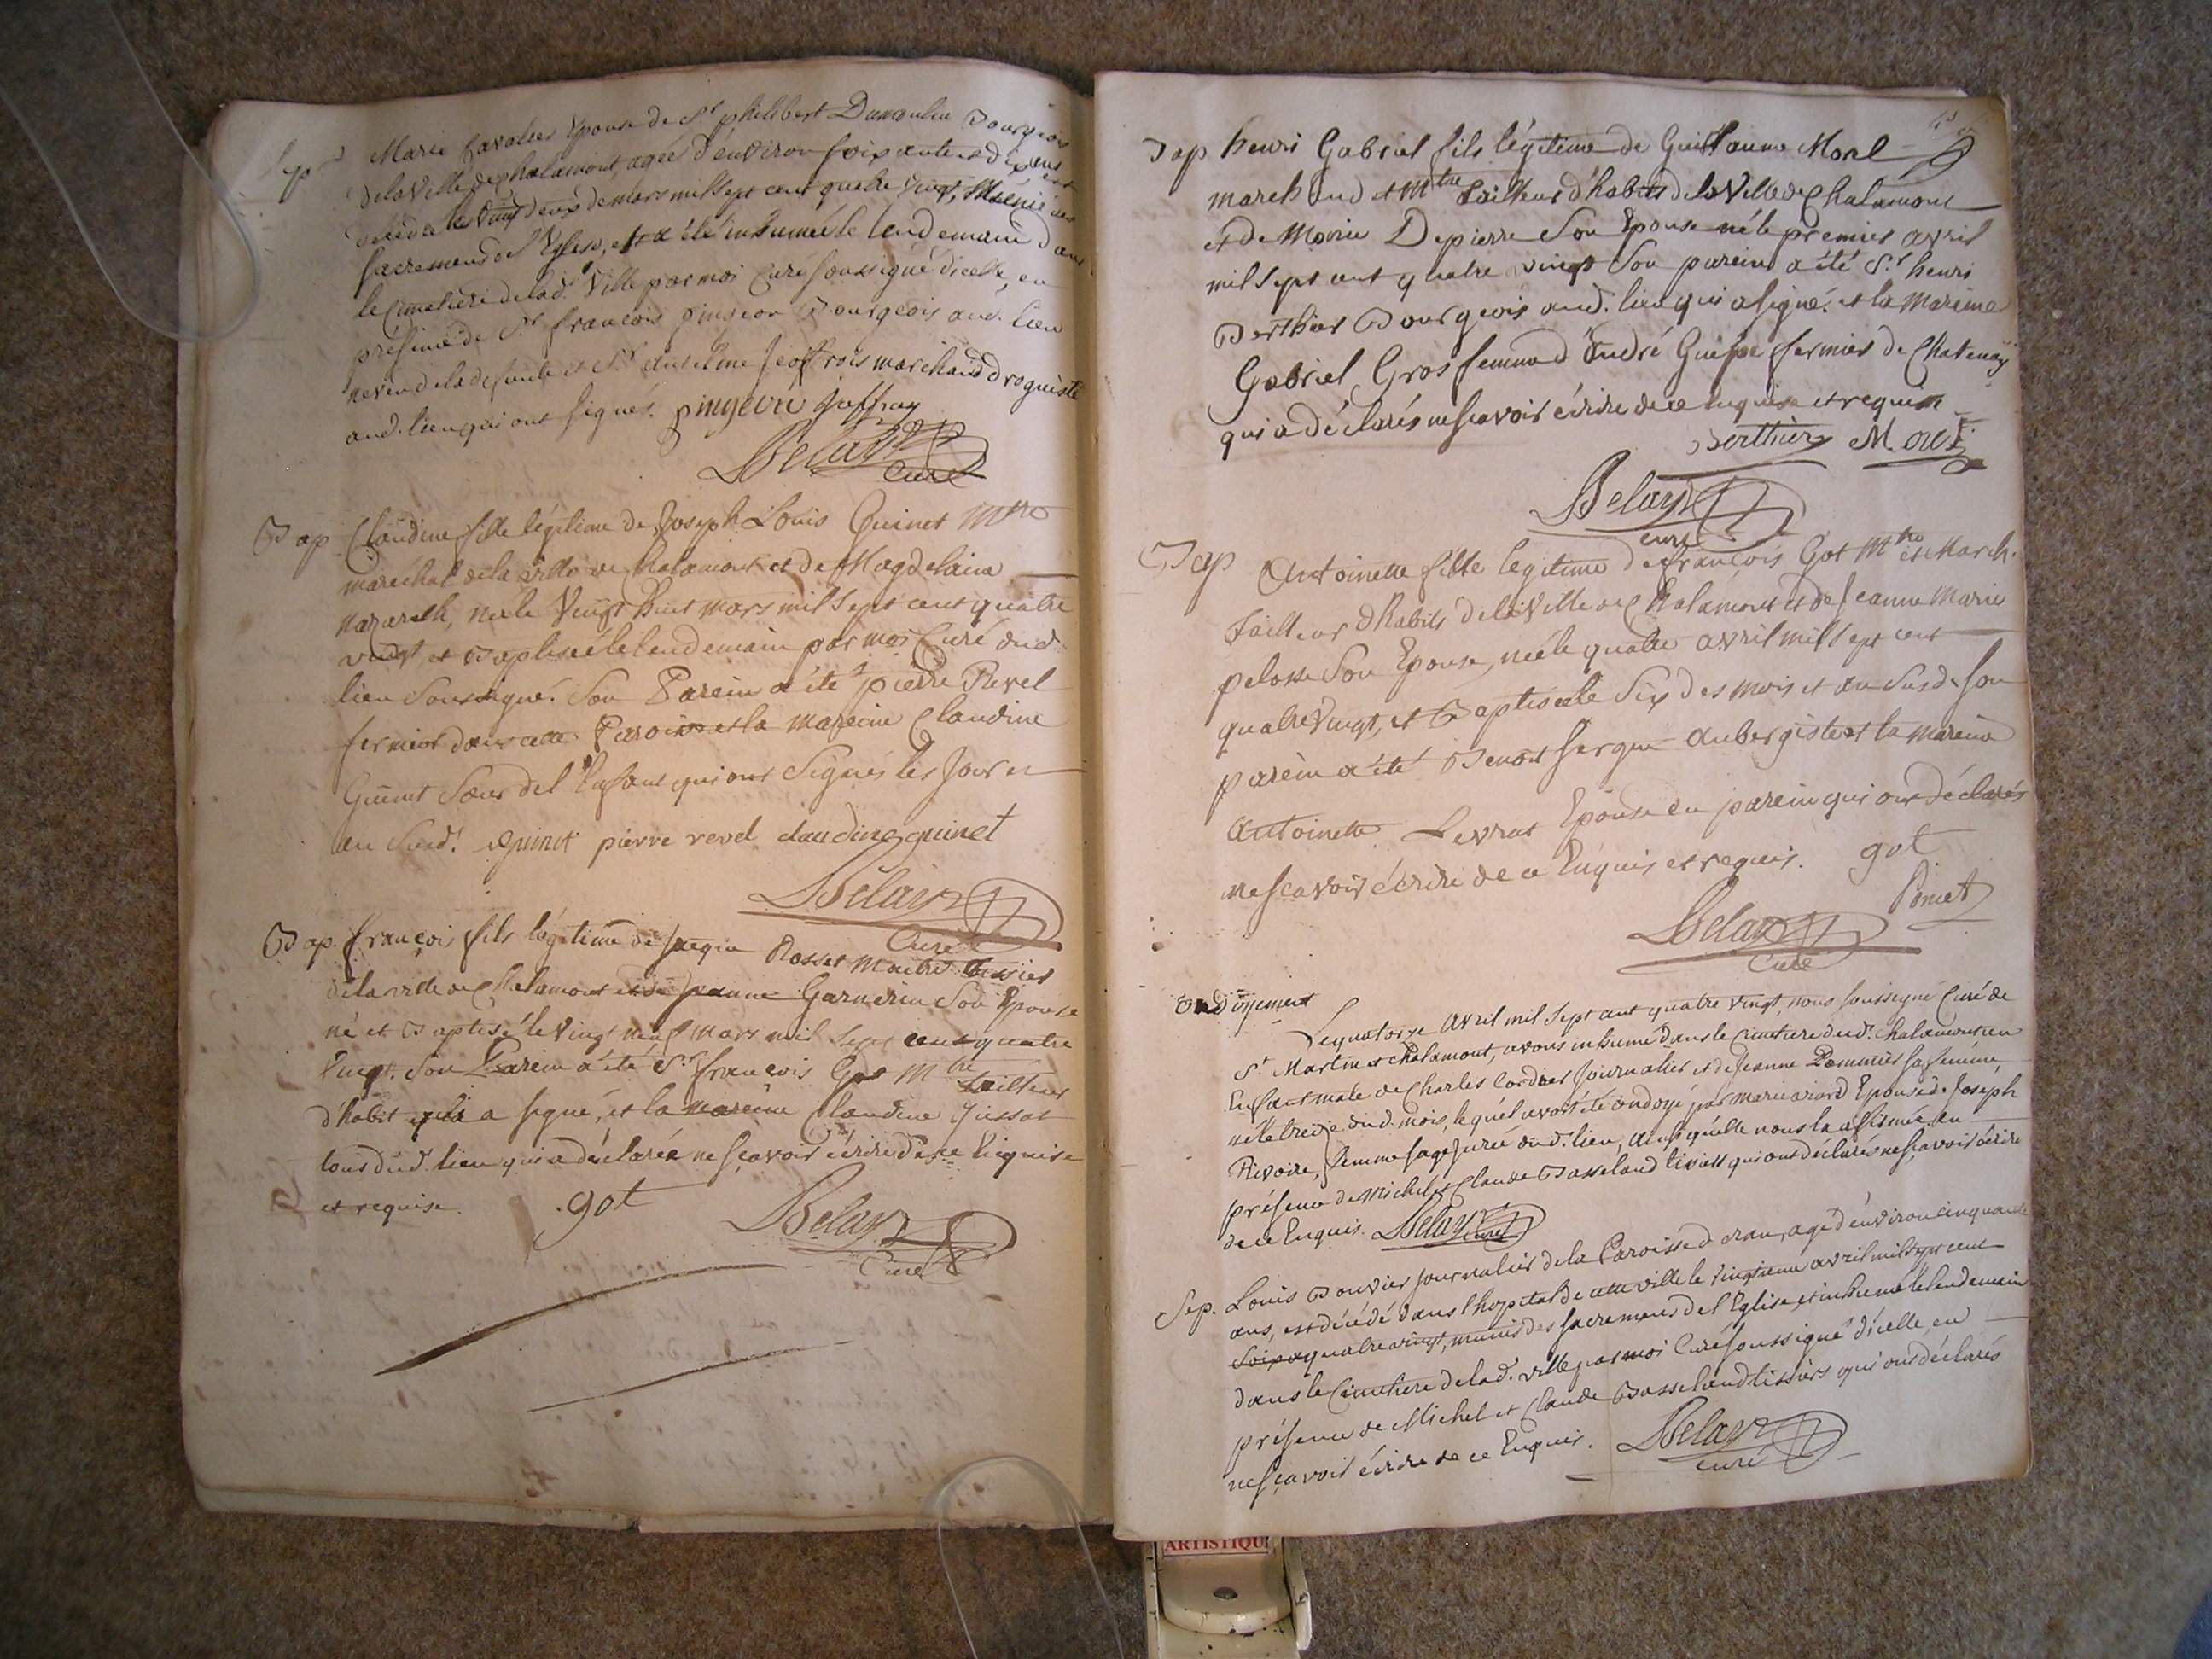 Sep. Marie Cavalier Epouse de Sr philibert Dumoulin Bourgeois
de la Ville de chalamont, agée d'environ soixante et dix ans est
décédée le vingt deux de mars mil sept cent quatre vingt, Munie des
sacremens de l'Eglise, et a été inhumée le lendemain dans
le Cimetiere de lad. Ville par moi Curé soussigné d'icelle, en
présence de Sr françois pingeon Bourgeois aud. lieu
neveu de la defunte et Sr antelme Jeoffrois marchand droguiste
aud. lieu qui ont signés. pingeon Jeffray
Belay
Curé
Bap Claudine fille légitime de Joseph Louis Quinet Mtre
maréchal de la ville de Chalamont et de Magdelaine
Nazareth, née le Vingt huit mars mil sept cent quatre
vingt et Baptisée le lendemain par moi Curé dud.
lieu soussigné. Son Parein a été pierre Revel
fermier dans cette Paroisse et la mareine Claudine
Quinet soeur de l'Enfant qui ont signés les jour et
an susd. quinet pierre revel claudine quinet
Belay
Curé
Bap. françois fils légitime de Jaque Rosset Maitre tissier
de la ville de Chalamont et de Jeanne Garnerin son Epouse
né et Baptisé le vingt neuf mars mil sept cent quatre
Vingt. Son Parein a été Sr françois Got Mtre tailleur
d'habit qui a signé, et la mareine Claudine Jussot
tous dud. lieu qui a déclarée ne sçavoir écrire de ce Enquise
et requise. got
Belay
Curé
Bap henri Gabriel fils légitime de Guillaume Morel
marchand et Mtre tailleur d'habits de la Ville de Chalamont
et de Marie Depierre son Epouse né le premier avril
mil sept cent quatre vingt Son parein a été Sr henri
Berthier Bourgeois aud. lieu qui a signé. et la Mareine
Gabriel Gros femme d'André Guepe fermier de Chatenay
qui a déclarés ne scavoir écrire de ce enquise et requise
Berthier Morel
Belay
curé
Bap Antoinette fille legitime de françois Got Mtre et March.
Tailleur d'habits de la Ville de Chalamont et de Jeanne Marie
pelosse son Epouse, née le quatre avril mil sept cent
quatre Vingt, et Baptisée le Six des mois et an susd. son
parein a été Benoit Sergent Aubergiste et la mareine
Antoinette Levrat Epouse du parein qui ont déclarés
ne scavoir écrire de ce Enquis et requis. got
Poncet
Belay
Curé
Ondoyement
Le quatorze Avril mil sept cent quatre vingt, nous soussigné Curé de
St Martin et chalamont, avons inhumé dans le Cimetiere dud. chalamont un
Enfant male de Charles Cordier journalier et de Jeanne Pommier sa femme,
né le treize dud. mois, lequel avoit été ondoyé par marie Epouse de Joseph
Rivoire, femme sage jurée dud. lieu, ainsi qu'elle nous l'a affirmée en
présence de Michel et Claude Basseland tissiers qui ont déclarés ne sçavoir écrire
de ce Enquis. Belay curé
Sep. Louis Bouvier journalier de la Paroisse de cran, agé d'environ cinquante
ans, est décédé dans l'hopital de cette ville le vingtieme avril mil sept cent
quatre vingt, munis des sacremens de l'Eglise, et inhumé le lendemain
dans le Cimetiere de lad. ville par moi Curé soussigné d'icelle, en
présence de Michel et Claude Basseland tissiers qui ont déclarés
ne sçavoir écrire de ce Enquis. Belay
curé
ARTISTIQU